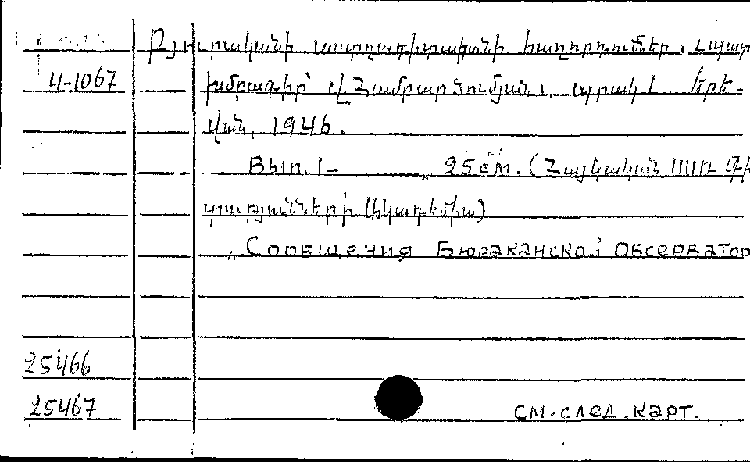 Բյուրականի աստղադիտարանի հաղորդումներ. Պատ
4-1067 խմբագիր՝ Վ. Համբարձումյան, պրակ 1 Երե-
վան, 1946.
Вып. 1- 25 см. (Հայկական ՍՍՌ Գի
տությունների Ակադեմիա)
Сообщения Бюраканской Обсерватор
25466
25467 см. след. карт.